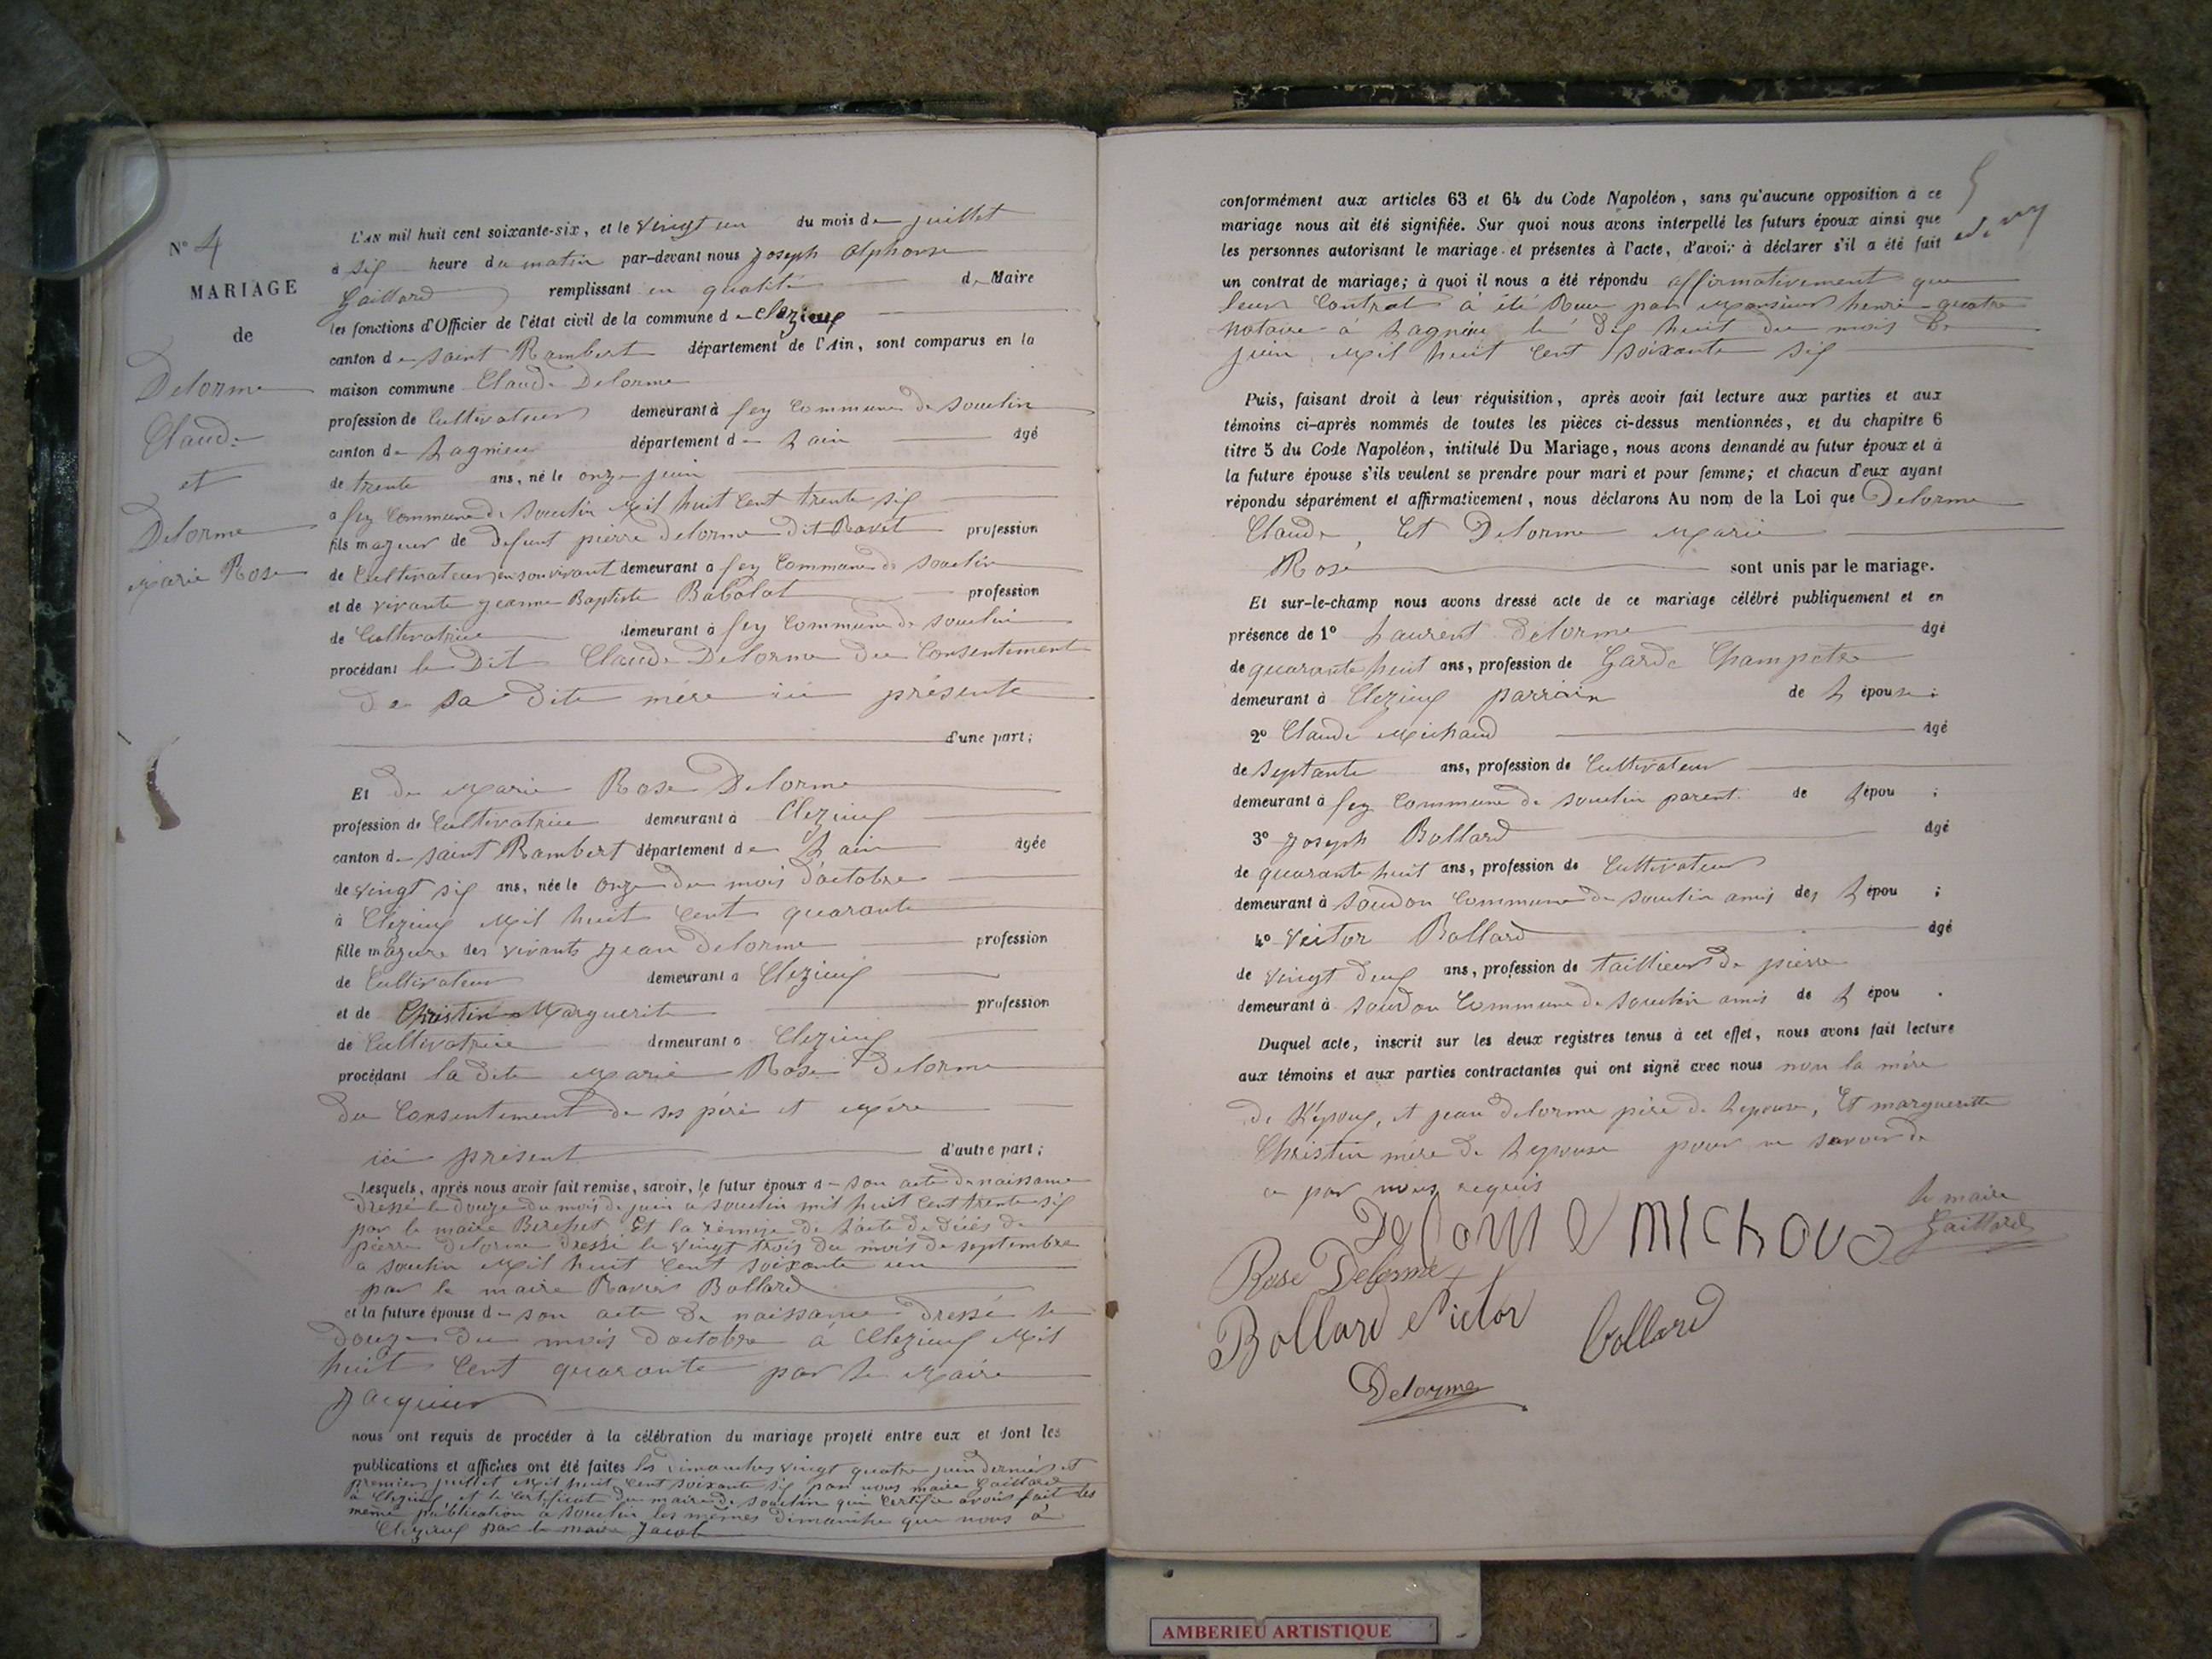 N° 4
MARIAGE
de
Delorme
Claude
et
Delorme
Marie Rose
L'AN mil huit cent soixante-six, et le vingt un du mois de juillet
à six heure du matin par-devant nous Joseph Alphonse
Gaillard remplissant en qualité de Maire
les fonctions d'Officier de l'état civil de la commune de Clézieux
canton de saint Rambert département de l'Ain, sont comparus en la
maison commune Claude Delorme
profession de Cultivateur demeurant à fey Commune de Souclin
canton de Lagnieu département de Lain âgé
de trente ans, né le onze juin
a fey Commune de Souclin Mil huit Cent trente six
fils majeur de defunt pierre Delorme dit Ravet profession
de Cultivateur en son vivant demeurant a fey Commune de Souclin
et de vivante jeanne Baptiste Babolat profession
de Cultivatrice demeurant à fey Commune de Souclin
procédant le Dit Claude Delorme du Consentement
de sa dite mère ici présente
d'une part;
Et de Marie Rose Delorme
profession de Cultivatrice demeurant à Clezieux
canton de saint Rambert département de Lain âgée
de vingt six ans, née le onze du mois d'octobre
à Clézieux Mil huit Cent quarante
fille majeure des vivants jean Delorme profession
de Cultivateur demeurant a Clezieux
et de Christin Marguerite profession
de Cultivatrice demeurant a Clezieux
procédant la dite Marie Rose Delorme
du Consentement de ses père et Mère
ici présent d'autre part;
Lesquels, après nous avoir fait remise, savoir, le futur époux de son acte de naissance
dressé le douze du mois de juin a Souclin mil huit Cent trente six
par le maire Et la remise de l'acte de décès de
pierre Delorme dressé le vingt trois du mois de septembre
a Souclin Mil huit Cent soixante un
par le maire Bollard
et la future épouse de son acte de naissance dressé le
douze du mois d'octobre à Clezieux Mil
huit Cent quarante par le Maire
Jacquier
nous ont requis de procéder à la célébration du mariage projeté entre eux et dont les
publications et affiches ont été faites les dimanches vingt quatre juin dernier et
premier juillet Mil huit Cent soixante six par nous maire Gaillard
à Clezieux et le Certificat du maire de Souclin qui Certifie avoir fait les
même publication a Souclin les mêmes dimanche que nous à
Clezieux par le maire Jacob
conformément aux articles 63 et 64 du Code Napoléon, sans qu'aucune opposition à ce
mariage nous ait été signifiée. Sur quoi nous avons interpellé les futurs époux ainsi que
les personnes autorisant le mariage et présentes à l'acte, d'avoir à déclarer s'il a été fait
un contrat de mariage; à quoi il nous a été répondu affirmativement que
leur Contrat à été Reue par Monsieur henri quatre
notaire à Lagnieu le dix huit du mois de
juin Mil huit Cent soixante six
Puis, faisant droit à leur réquisition, après avoir fait lecture aux parties et aux
témoins ci-après nommés de toutes les pièces ci-dessus mentionnées, et du chapitre 6
titre 5 du Code Napoléon, intitulé Du Mariage, nous avons demandé au futur époux et à
la future épouse s'ils veulent se prendre pour mari et pour femme; et chacun d'eux ayant
répondu séparément et affirmativement, nous déclarons Au nom de la Loi que Delorme
Claude, Et Delorme Marie
Rose sont unis par le mariage.
Et sur-le-champ nous avons dressé acte de ce mariage célébré publiquement et en
présence de 1° Laurent Delorme âgé
de quarante huit ans, profession de Garde Champetre
demeurant à Clezieux parrain de L épouse;
2° Claude Michaud âgé
de septante ans, profession de Cultivateur
demeurant à fey Commune de Souclin parent de L épou ;
3° Joseph Bollard âgé
de quarante huit ans, profession de Cultivateur
demeurant à Soudon Commune de Souclin amis des L épou ;
4° Veitor Bollard âgé
de vingt deux ans, profession de taillieur de pierre
demeurant à Soudon Commune de Souclin amis de L épou .
Duquel acte, inscrit sur les deux registres tenus à cet effet, nous avons fait lecture
aux témoins et aux parties contractantes qui ont signé avec nous non la mère
de L'epoux, et jean Delorme père de Lepouse, Et margueritte
Christin mère de Lepouse pour ne savoir de
ce par nous requis
Le maire
Gaillard
Delorme Michoud
Rose Delorme
Bollard Victor bollard
Delorme
AMBERIEU ARTISTIQUE